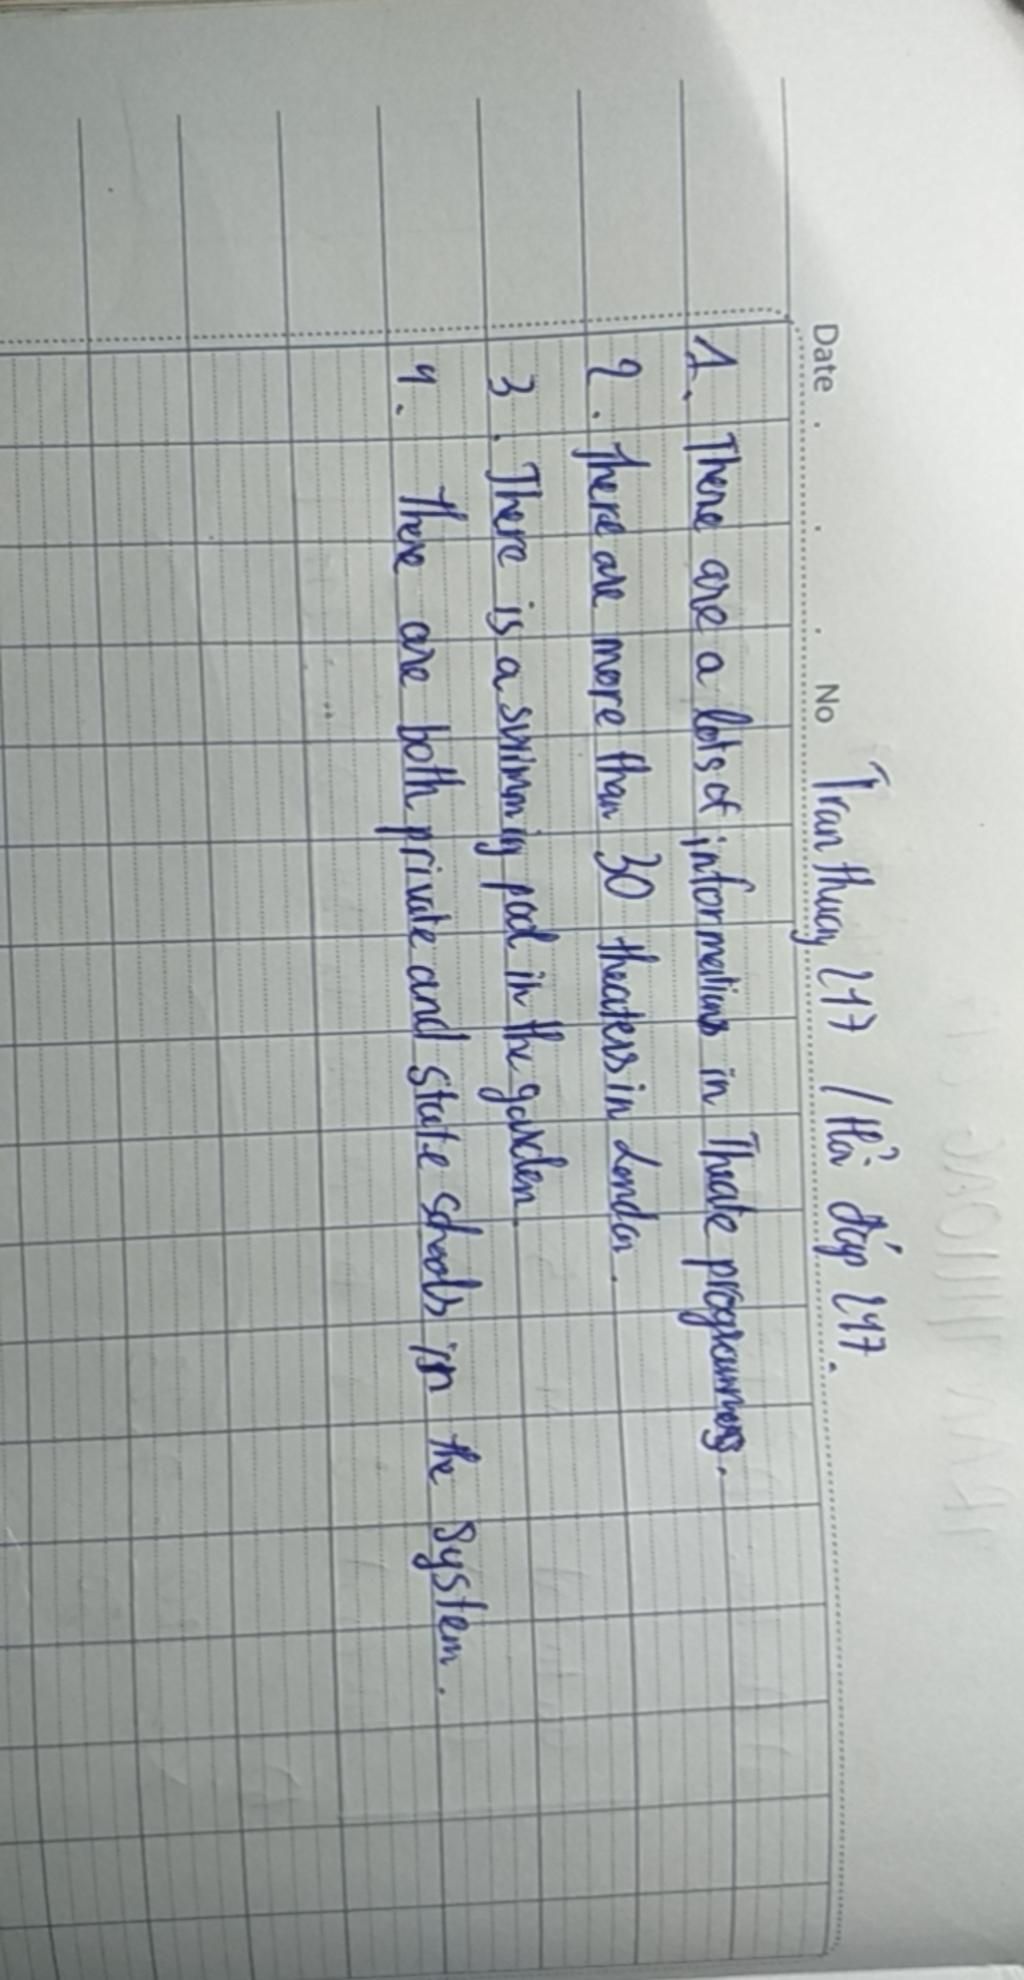 Date No Tran thuay 247 / Hỏi đáp 247.
1. There are a lots of informations in Theate programmers.
2. There are more than 30 theaters in London.
3. There is a swimmig pool in the garden.
4. There are both private and state schools in the system.